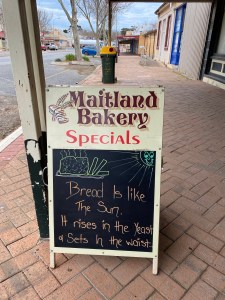 Maitland
Bakery
Specials
Bread Is like
The Sun.
It rises in the Yeast
& Sets In the waist.